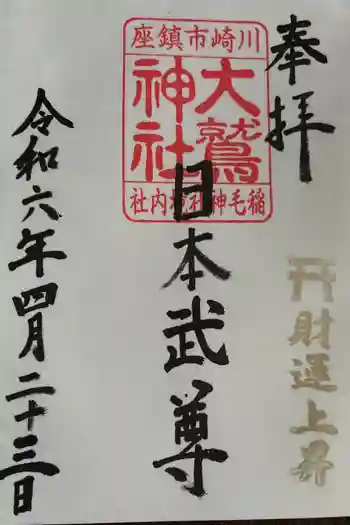 奉拝
川崎市鎮座
大鷲
神社
稲毛神社境内社
日本武尊
財運上昇
令和六年四月二十三日